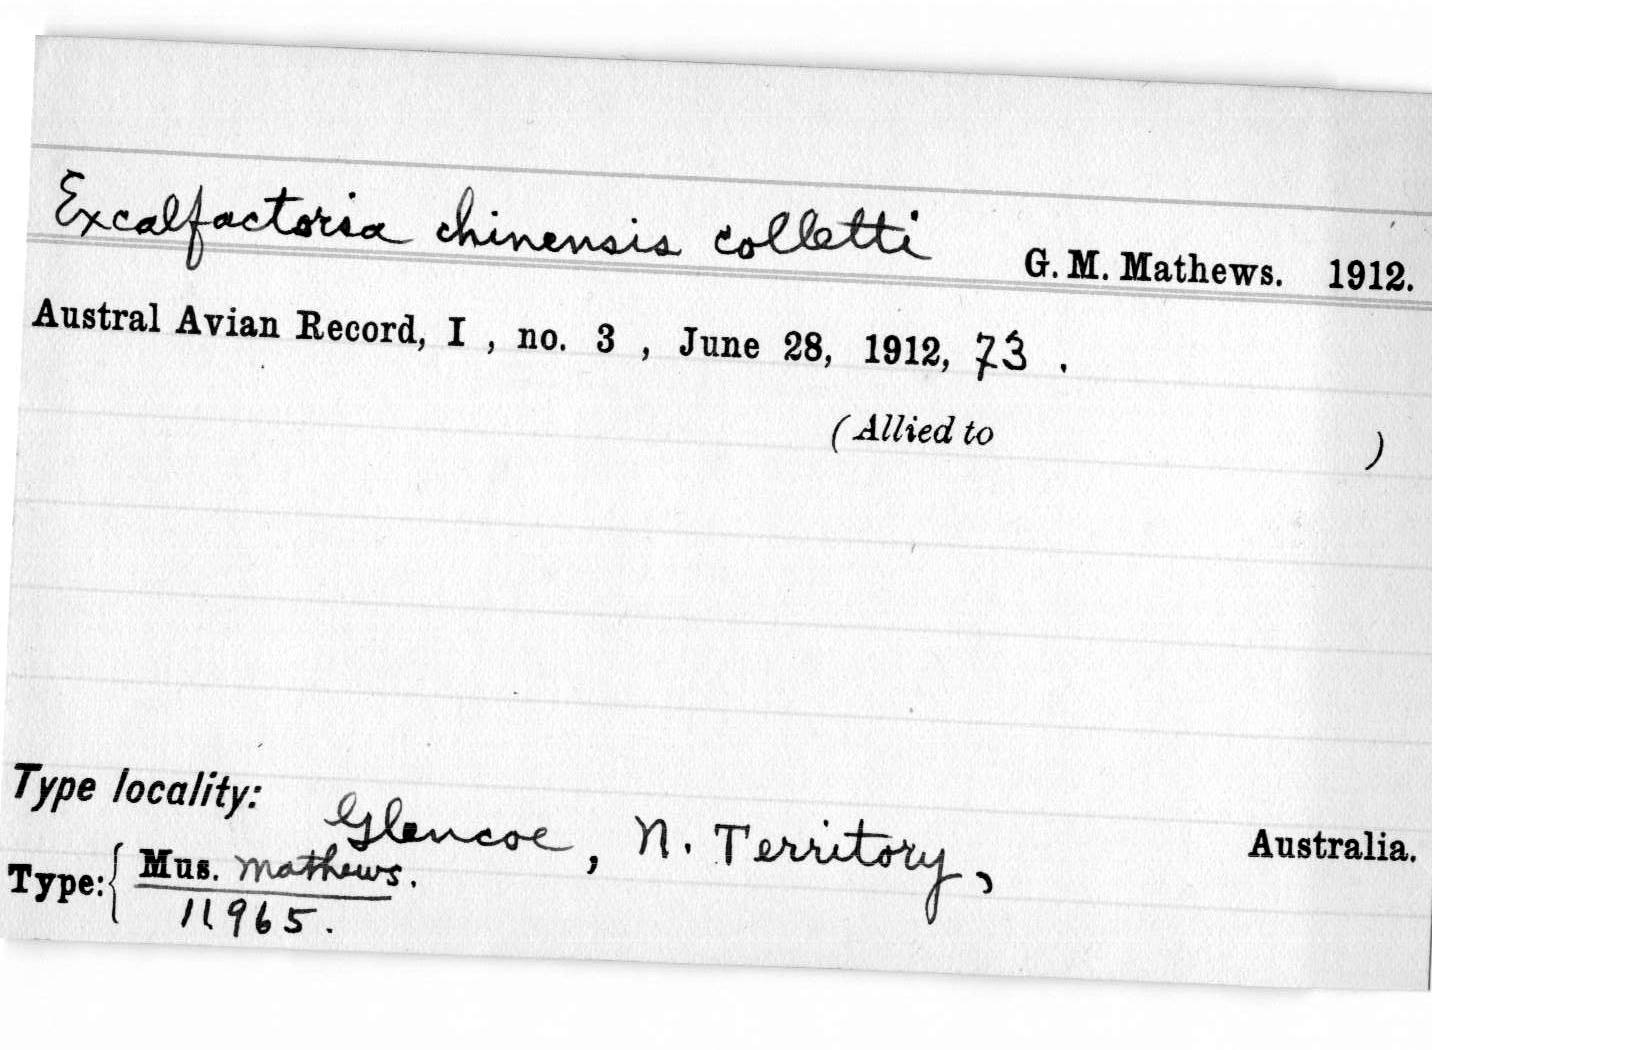 Excalfactoria chinensis colletti G. M. Mathews. 1912.
Austral Avian Record, I , no. 3 , June 28, 1912, 73 .
(Allied to )
Type locality: Glencoe, N. Territory, Australia.
Type: { Mus. Mathews.
11965.